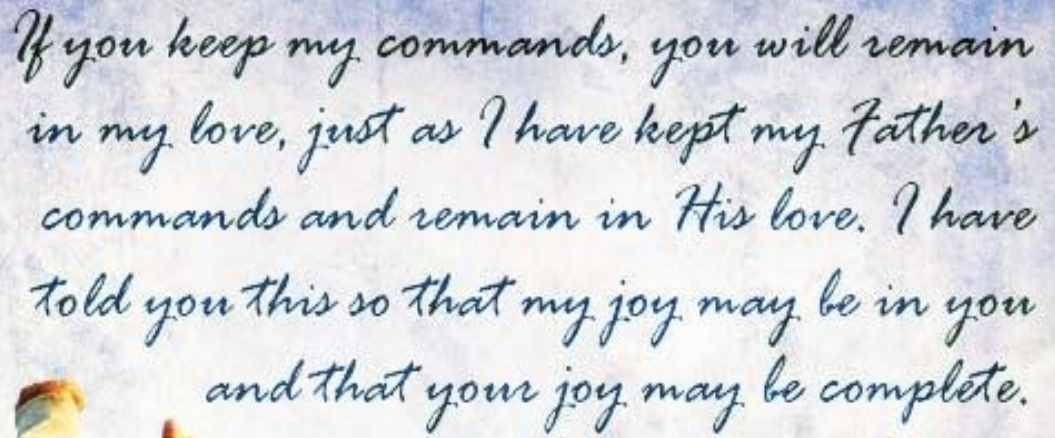 If you keep my commands, you will remain
in my love, just as I have kept my Father's
commands and remain in His love. I have
told you this so that my joy may be in you
and that your joy may be complete.